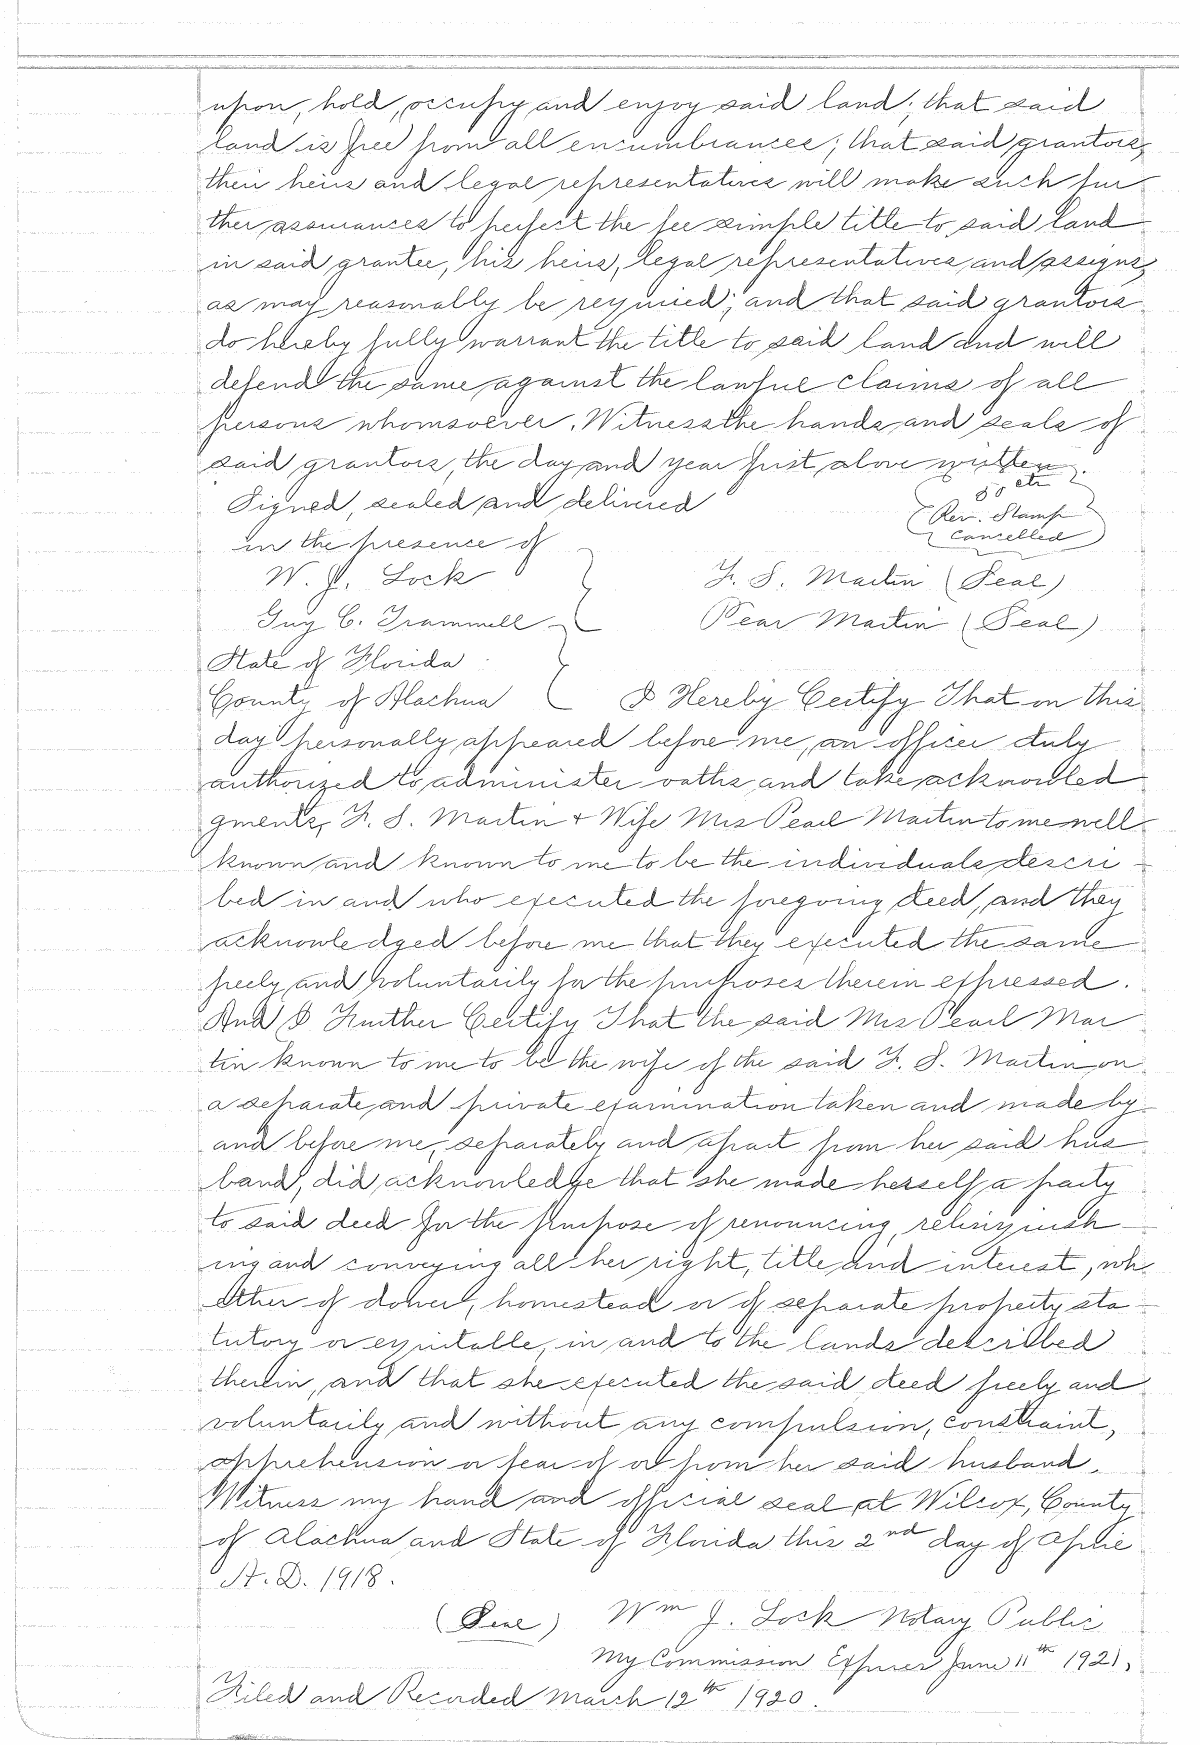 upon, hold, occupy and enjoy said land; that said
land is free from all encumbrances; that said grantors,
their heirs and legal representatives will make such fur
ther assurances to perfect the fee simple title to said land
in said grantee, his heirs, legal representatives and assigns,
as may reasonably be required; and that said grantors
do hereby fully warrant the title to said land and will
defend the same against the lawful claims of all
persons whomsoever. Witness the hands and seals of
said grantors, the day and year first above written.
Signed, sealed and delivered
cts
Rev. Stamp
in the presence of
Cancelled
W. J. Lock F. S. Martin (Seal)
Guy C. Trammell Pear Martin (Seal)
State of Florida
County of Alachua I Hereby Certify That on this
day personally appeared before me, an officer duly
authorized to administer oaths and take acknowled
gments, F. S. Martin + Wife Mrs Pearl Martin to me well
known and known to me to be the individuals descri-
bed in and who executed the foregoing deed, and they
acknowledged before me that they executed the same
freely and voluntarily for the purposes therein expressed.
And I Further Certify That the said Mrs Pearl Mar
tin known to me to be the wife of the said F. S. Martin, on
a separate and private examination taken and made by
and before me, separately and apart from her said hus
band, did acknowledge that she made herself a party
to said deed for the purpose of renouncing, relinquish
ing and conveying all her right, title and interest, wh
ether of dower, homestead or of separate property sta-
tutory or equitable, in and to the lands described
therein, and that she executed the said deed freely and
voluntarily and without any compulsion, constraint,
apprehension or fear of or from her said husband.
Witness my hand and official seal at Wilcox, County
of Alachua and State of Florida this 2nd day of April
A. D. 1918.
(Seal) Wm J. Lock Notary Public
My Commission Expires June 11th 1921.
Filed and Recorded March 12th 1920.